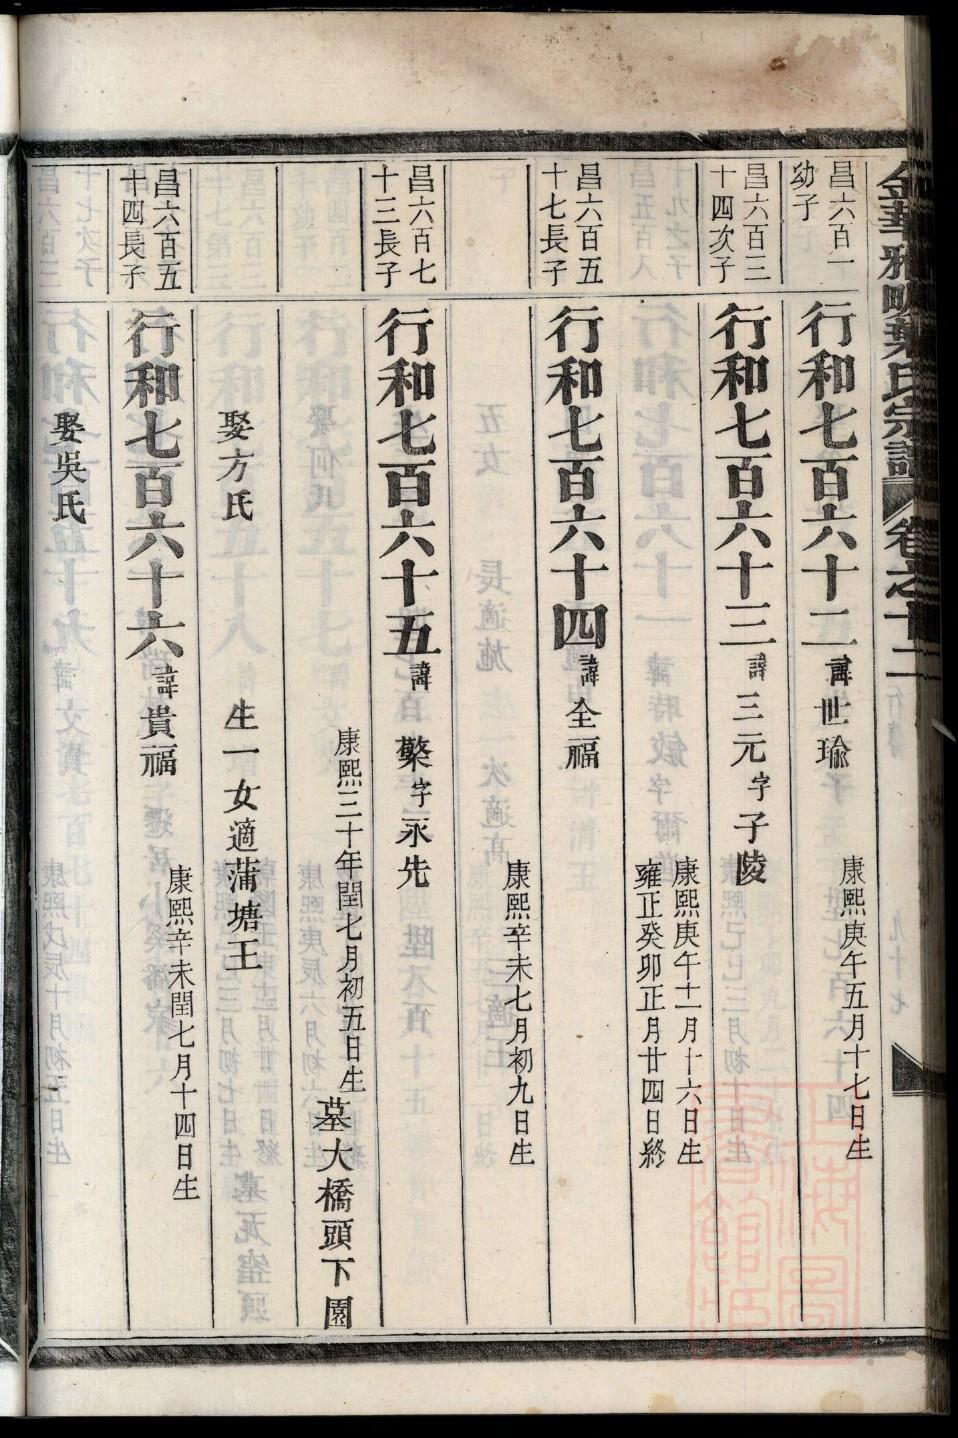 金華雅畈葉氏宗譜 卷之十二
昌六百一
幼子
行和七百六十二 諱世瑜
康熙庚午五月十七日生
昌六百三
十四次子
行和七百六十三 諱三元字子陵
康熙庚午十一月十六日生
雍正癸卯正月廿四日終
昌六百五
十七長子
行和七百六十四 諱全福
康熙辛未七月初九日生
昌六百七
十三長子
行和七百六十五 諱檠字永先
康熙三十年閏七月初五日生 墓大橋頭下園
娶方氏 生一女適蒲塘王
昌六百五
十四長子
行和七百六十六 諱貴福
康熙辛未閏七月十四日生
娶吳氏